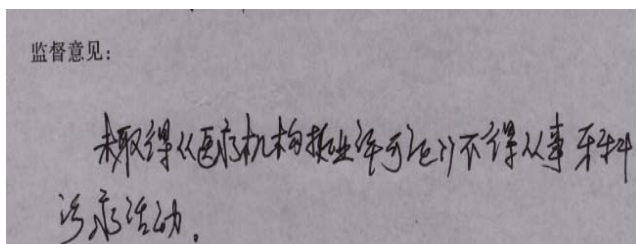 监督意见：
未取得《医疗机构执业许可证》不得从事牙科
诊疗活动。